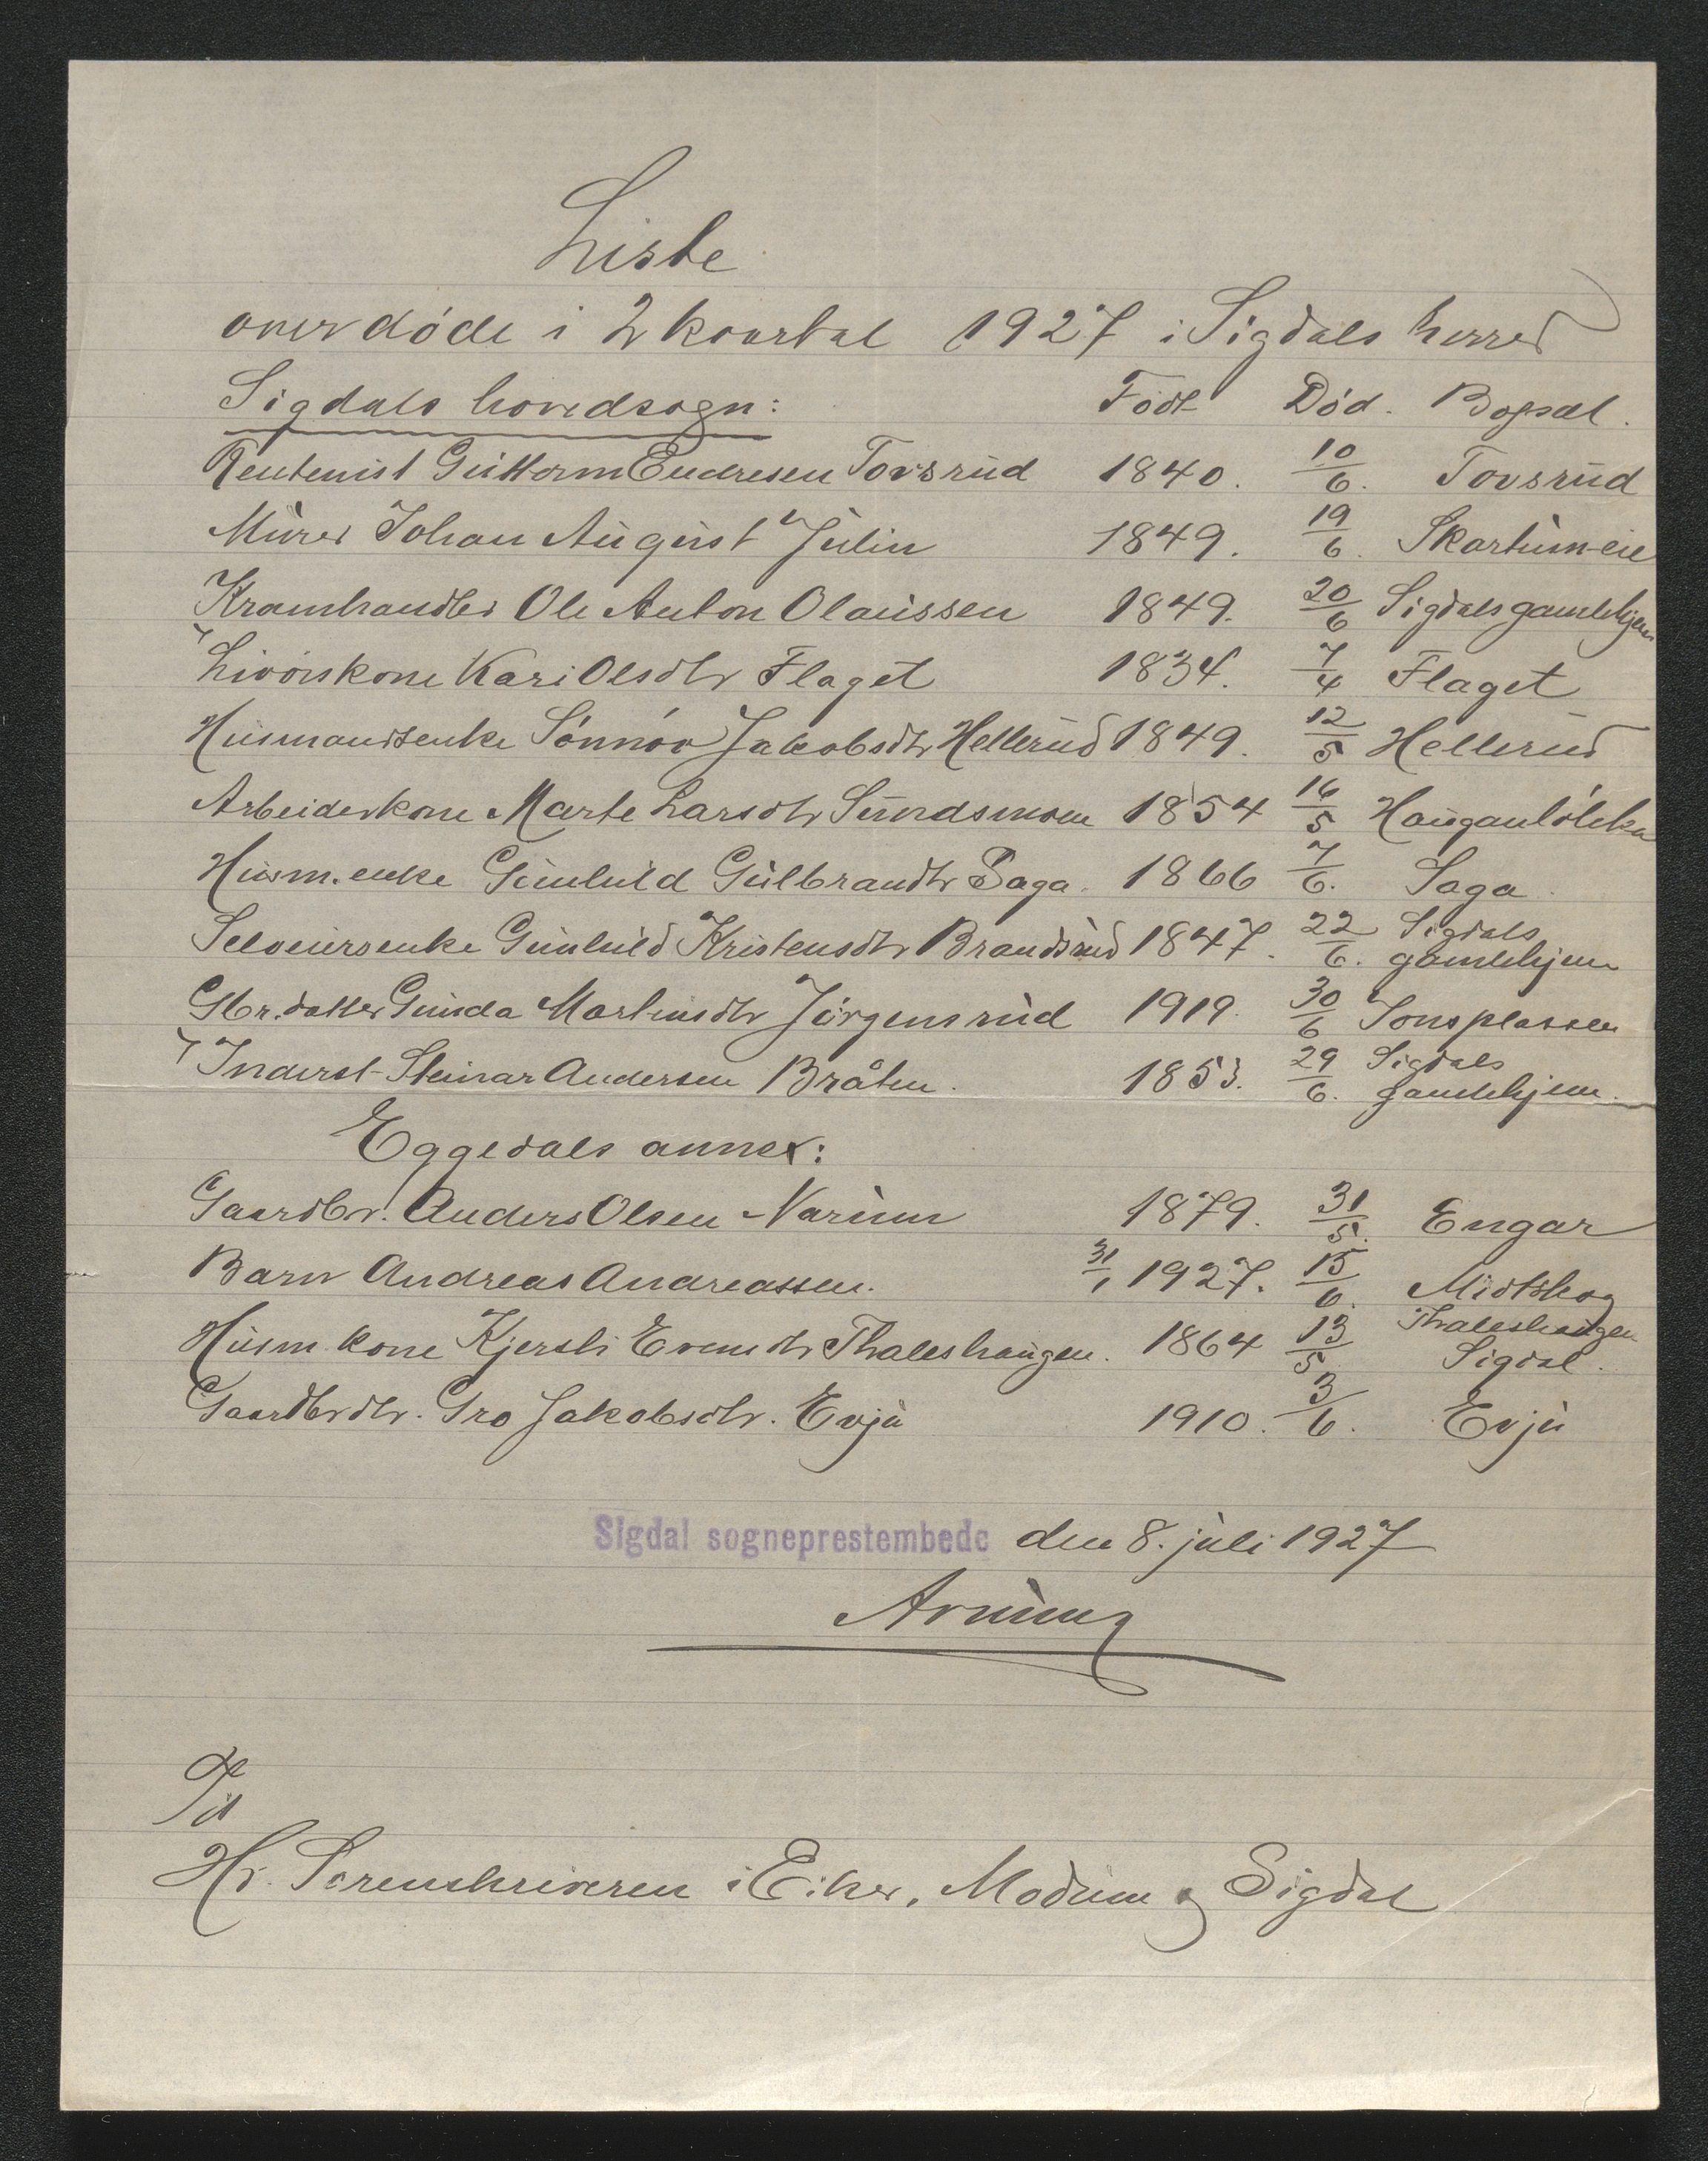 Liste
over døde i 2 kvartal 1927 i Sigdals herred
Sigdals hovedsogn: Født Død. Bopæl.
Rentenist Guttorm Endresen Tovsrud 1840. 10/6. Tovsrud
Murer Johan August Julin 1849. 19/6. Skartum-eie
Kramhandler Ole Anton Olaussen 1849. 20/6 Sigdals gamlehjem
Livørskone Kari Olsdtr Flaget 1834. 7/4 Flaget
Husmandsenke Sønnøv Jakobsdtr Hellerud 1849. 12/5 Hellerud
Arbeiderkone Marte Larsdtr Sundsmoen 1854 16/5 Hauganløkka
Husm.enke Gunhild Gulbrandtr Saga. 1866 7/6. Saga.
Selveiersenke Gunhild Kristensdtr Brandsrud 1847. 22/6. Sigdals gamlehjem
Gbr.datter Gunda Martinsdtr Jørgensrud 1919. 30/6 Jonsplassen
Inderst Steinar Andersen Bråten. 1853. 29/6. Sigdals gamlehjem.
Eggedals annex:
Gaardbr. Anders Olsen Narum 1879. 31/5. Engar
Barn Andreas Andreassen. 31/1 1927. 15/6. Midtskog
Husm. kone Kjersti Evensdtr Thaleshaugen. 1864 13/5 Thaleshaugen Sigdal.
Gaardbrdtr. Gro Jakobsdtr. Evju 1910. 3/6. Evju
Sigdal sogneprestembede den 8. juli 1927
Til
Hr. Sorenskriveren i Eiker, Modum og Sigdal